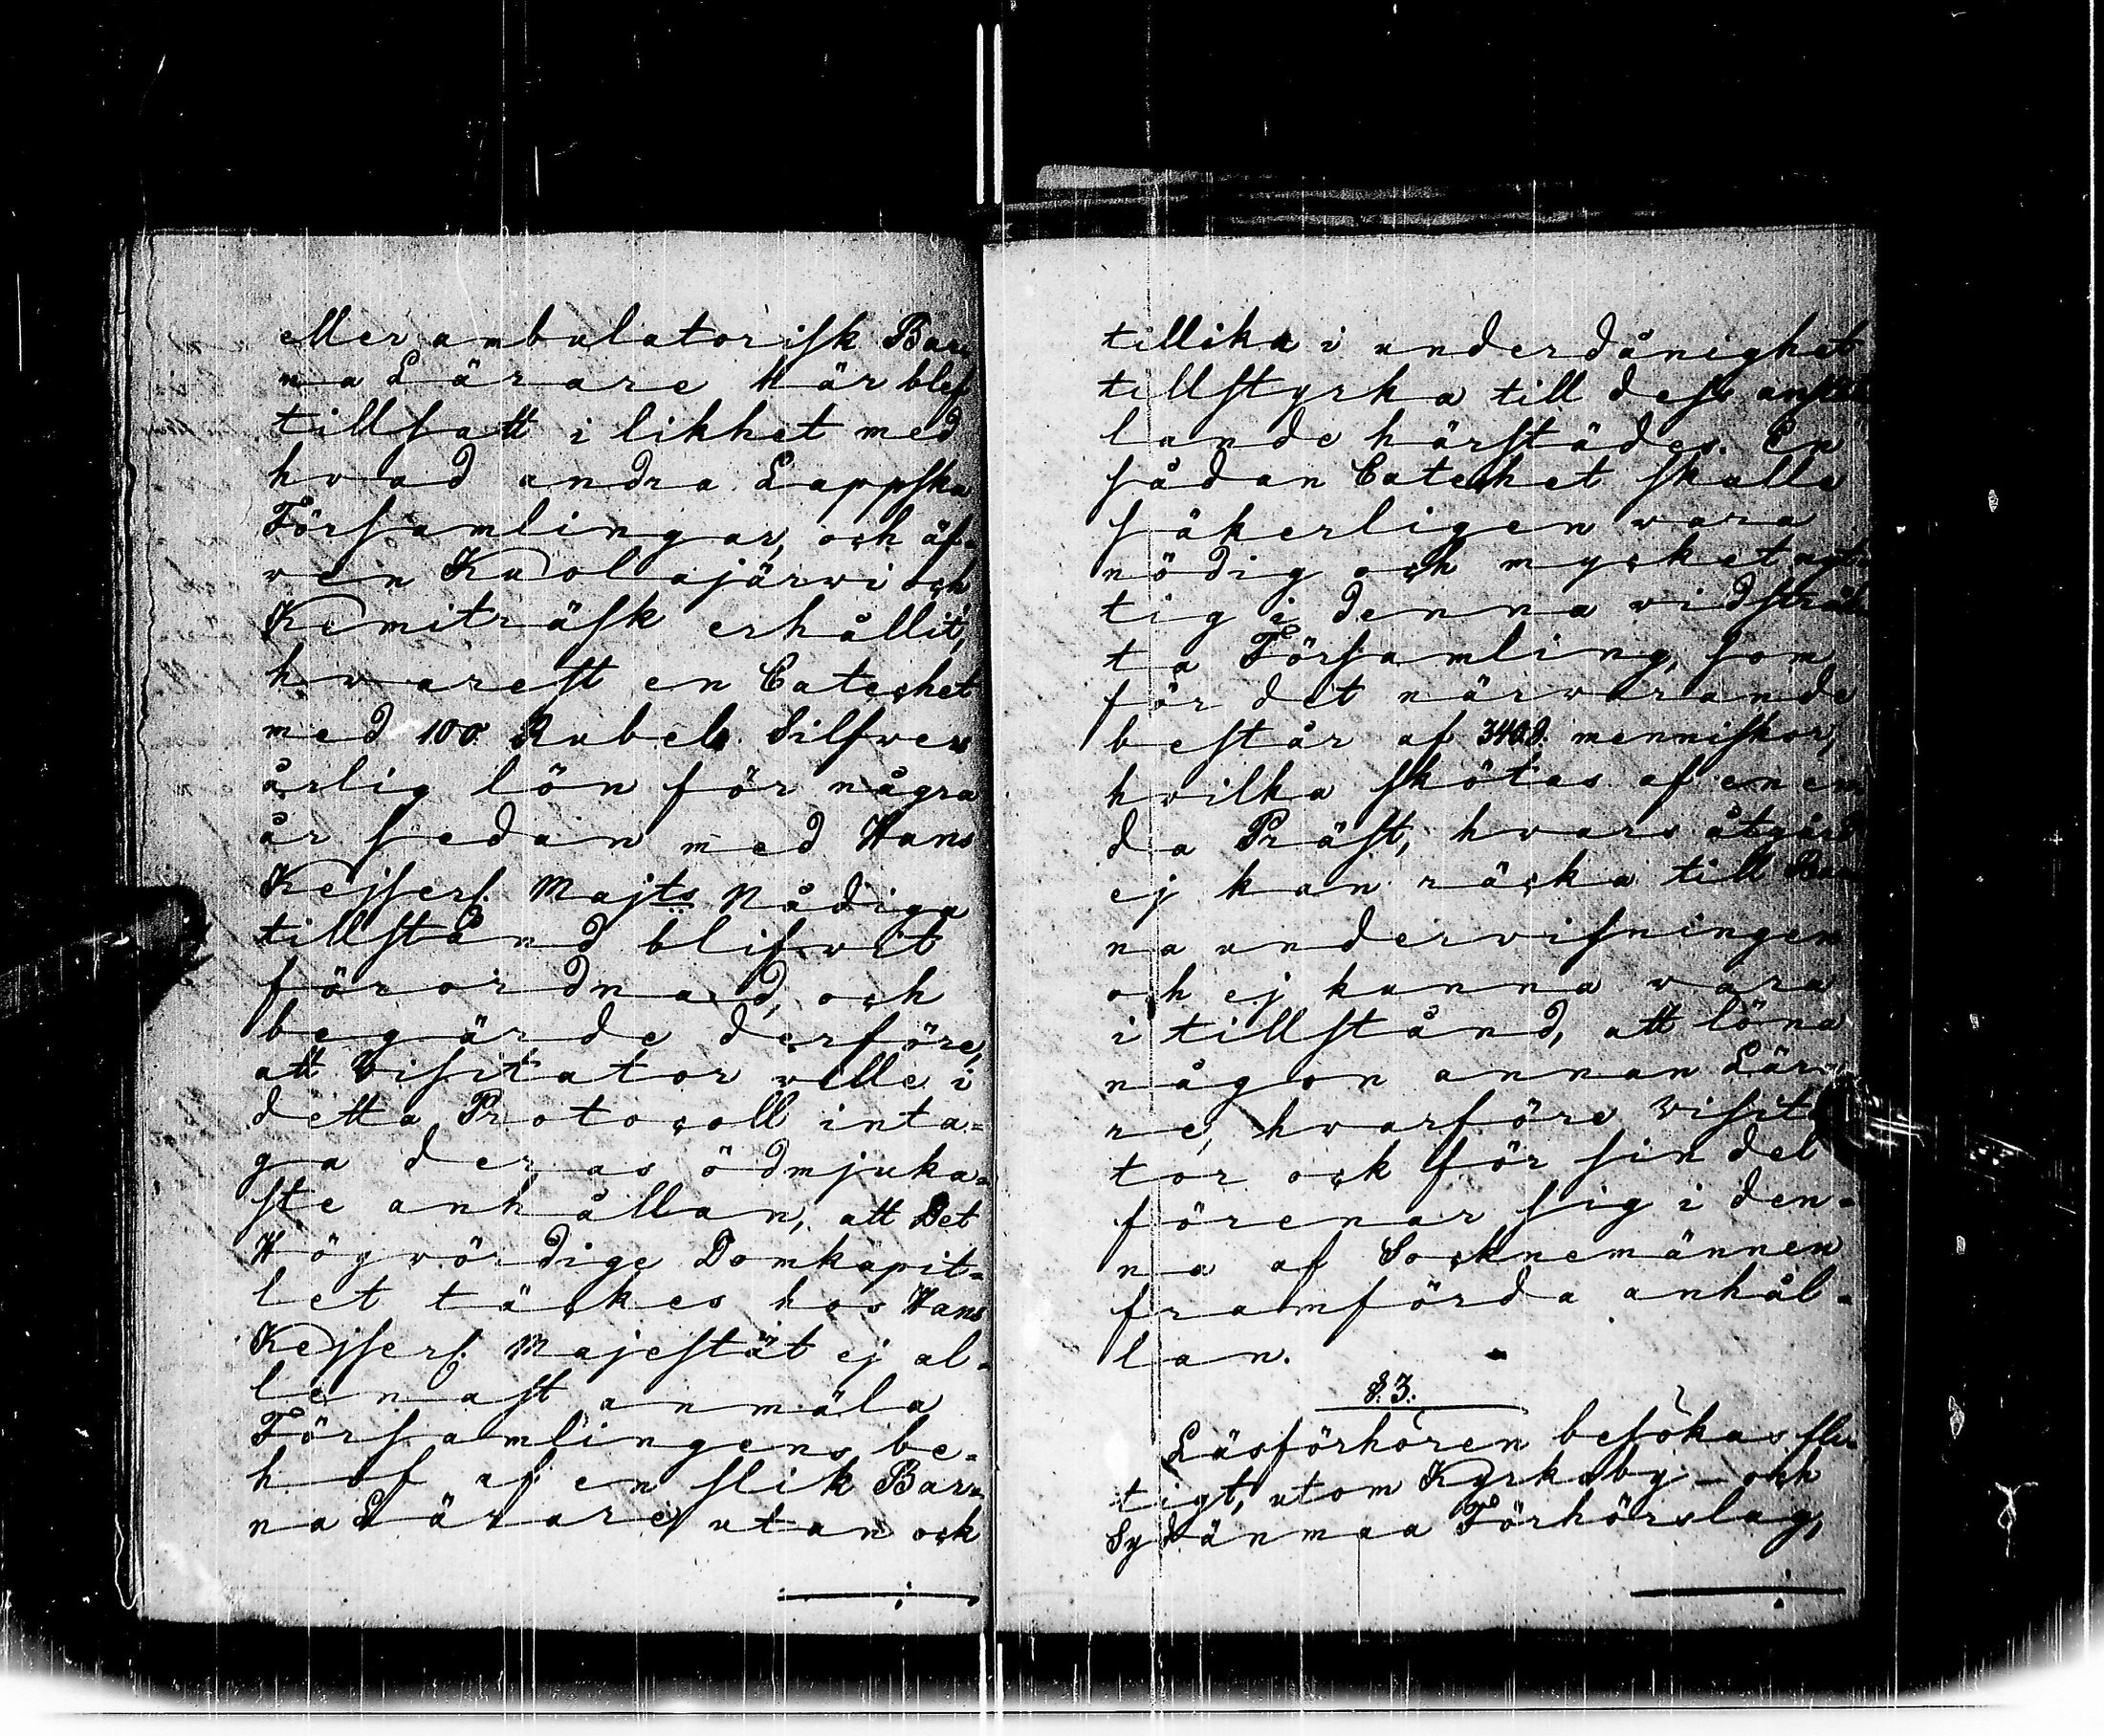 eller ambulatorisk Bar-
na Lärare här blef
tillsatt i likhet med
hvad andra Lappska
Församlingar, och äf-
ven Kuolajärvi och
Kemiträsk erhållit,
hvarest en Catechet
med 100 Rubels Silfver
årlig lön för några
år sedan med Hans
Kejserl. Majts Nådiga
tillstånd blifvit
förordnad, och
begärde derföre,
att Visitator ville i
detta Protocoll inta-
ga deras ödmjuka-
ste anhållan, att Det
Högvördige Domkapit-
let täckes hos Hans
Kejserl. Majestät ej al-
lenast anmäla
Församlingens be-
hof af en slik Barn-
na Lärare, utan ock
tillika i underdånighet
tillstyrka till dess anstäl-
lande härstädes. En
sådan Catechet skulle
säkerligen vara
nödig och mycket nyt-
tig i denna vidsträk-
ta Församling, som
för det närvarande
består af 3408 menniskor,
hvilka skötas af en en-
da Präst, hvars åtgärd
ej kan räcka till Bar-
na undervisningen
och ej kunna vara
i tillstånd, att löna
någon annan Lära-
re, hvarföre Visita-
tor ock för sin del
förenar sig i den-
na af Socknemännen
framförda anhål-
lan.
§.3.
Läsförhören besökas fli-
tigt, utom Kyrkoby- och
Sydänmaa Förhörslag,